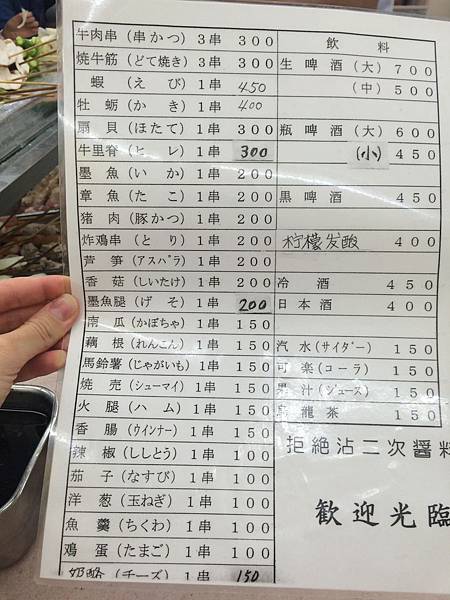 牛肉串（串かつ）3串 300
焼牛筋（どて焼き）3串 300
蝦（えび）1串 450
牡蛎（かき）1串 400
扇貝（ほたて）1串 300
牛里脊（ヒレ）1串 300
墨魚（いか）1串 200
章魚（たこ）1串 200
猪肉（豚かつ）1串 200
炸鶏串（とり）1串 200
芦笋（アスパラ）1串 200
香菇（しいたけ）1串 200
墨魚腿（げそ）1串 200
南瓜（かぼちゃ）1串 150
藕根（れんこん）1串 150
馬鈴薯（じゃがいも）1串 150
焼売（シューマイ）1串 150
火腿（ハム）1串 150
香腸（ウインナー）1串 150
辣椒（ししとう）1串 100
茄子（なすび）1串 100
洋葱（玉ねぎ）1串 100
魚羹（ちくわ）1串 100
鶏蛋（たまご）1串 100
奶酪（チーズ）1串 150
飲料
生啤酒（大）700
（中）500
瓶啤酒（大）600
（小）450
黒啤酒 450
柠檬发酸 400
冷酒 450
日本酒 400
汽水（サイダー）150
可楽（コーラ）150
果汁（ジュース）150
烏龍茶 150
拒絶沾二次醤料
歓迎光臨